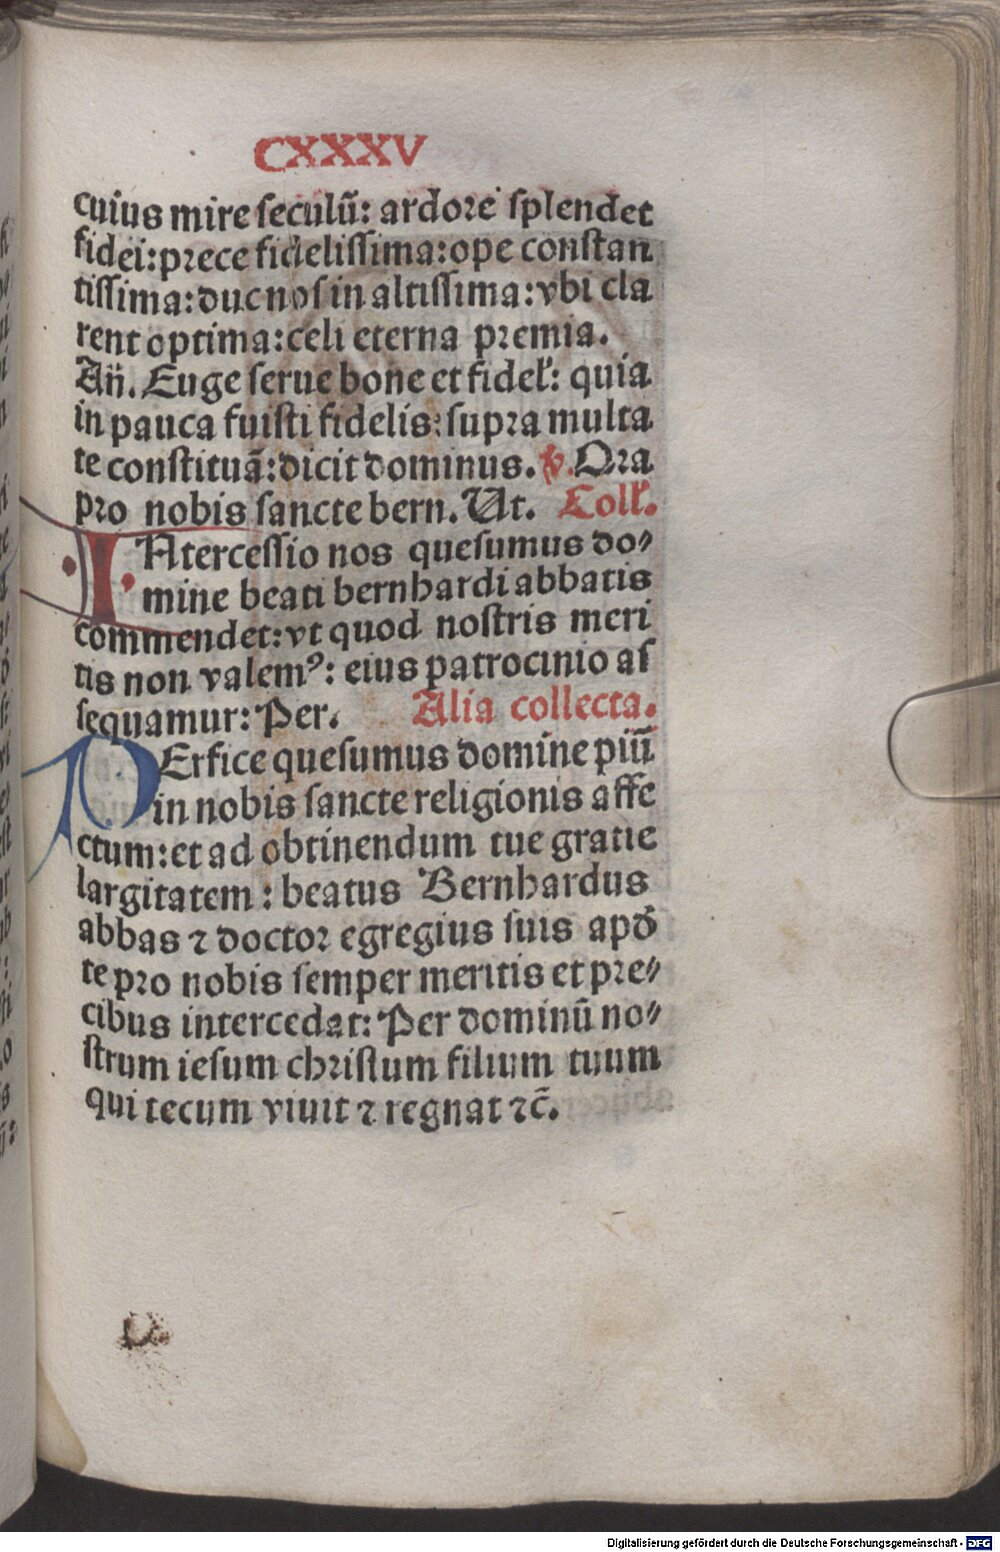 CXXXV
cuius mire seculū: ardore splendet
fidei:prece fidelissima:ope constan
tissima:duc nos in altissima:vbi cla
rent optima:celi eterna premia.
Añ. Euge serue bone et fideł: quia
in pauca fuisti fidelis:supra multa
te constituā:dicit dominus. ℣. Ora
pro nobis sancte bern. Ut. Colł.
INtercessio nos quesumus do⸗
mine beati bernhardi abbatis
commendet:vt quod nostris meri
tis non valemꝰ: eius patrocinio as
sequamur: Per. Alia collecta.
PErfice quesumus domine piū
in nobis sancte religionis affe
ctum:et ad obtinendum tue gratie
largitatem: beatus Bernhardus
abbas ⁊ doctor egregius suis apđ
te pro nobis semper meritis et pre⸗
cibus intercedat: Per dominū no⸗
strum iesum christum filium tuum
qui tecum viuit ⁊ regnat ⁊c̄.
Digitalisierung gefördert durch die Deutsche Forschungsgemeinschaft - DFG